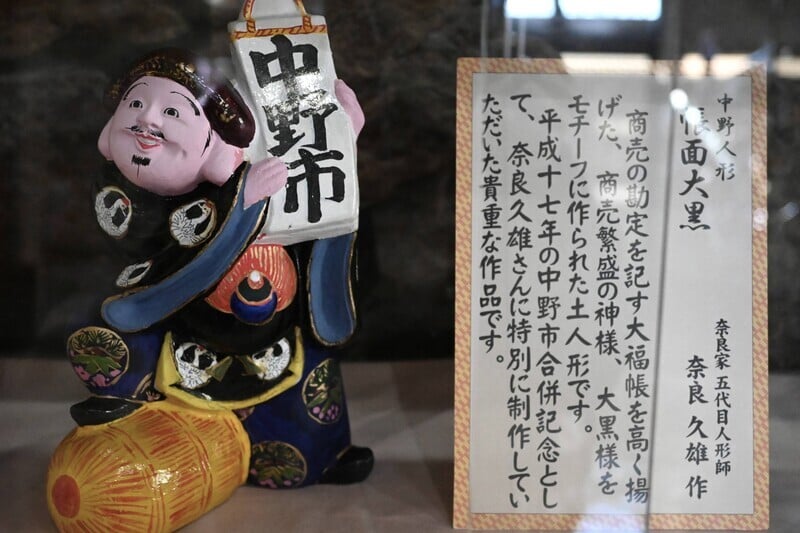 中野市
中野人形
帳面大黒
奈良家 五代目人形師
奈良 久雄 作
商売の勘定を記す大福帳を高く揚
げた、商売繁盛の神様、大黒様を
モチーフに作られた土人形です。
平成十七年の中野市合併記念とし
て、奈良久雄さんに特別に制作してい
ただいた貴重な作品です。